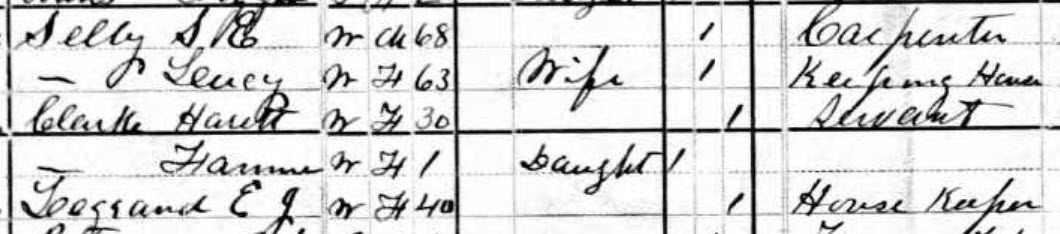 Selby S E W M 68 1 Carpenter
— Leucy W F 63 Wife 1 Keeping House
Clarke Harett W F 30 1 Servant
— Fannie W F 1 Daught 1
Leggrand E J W F 40 1 House Keeper